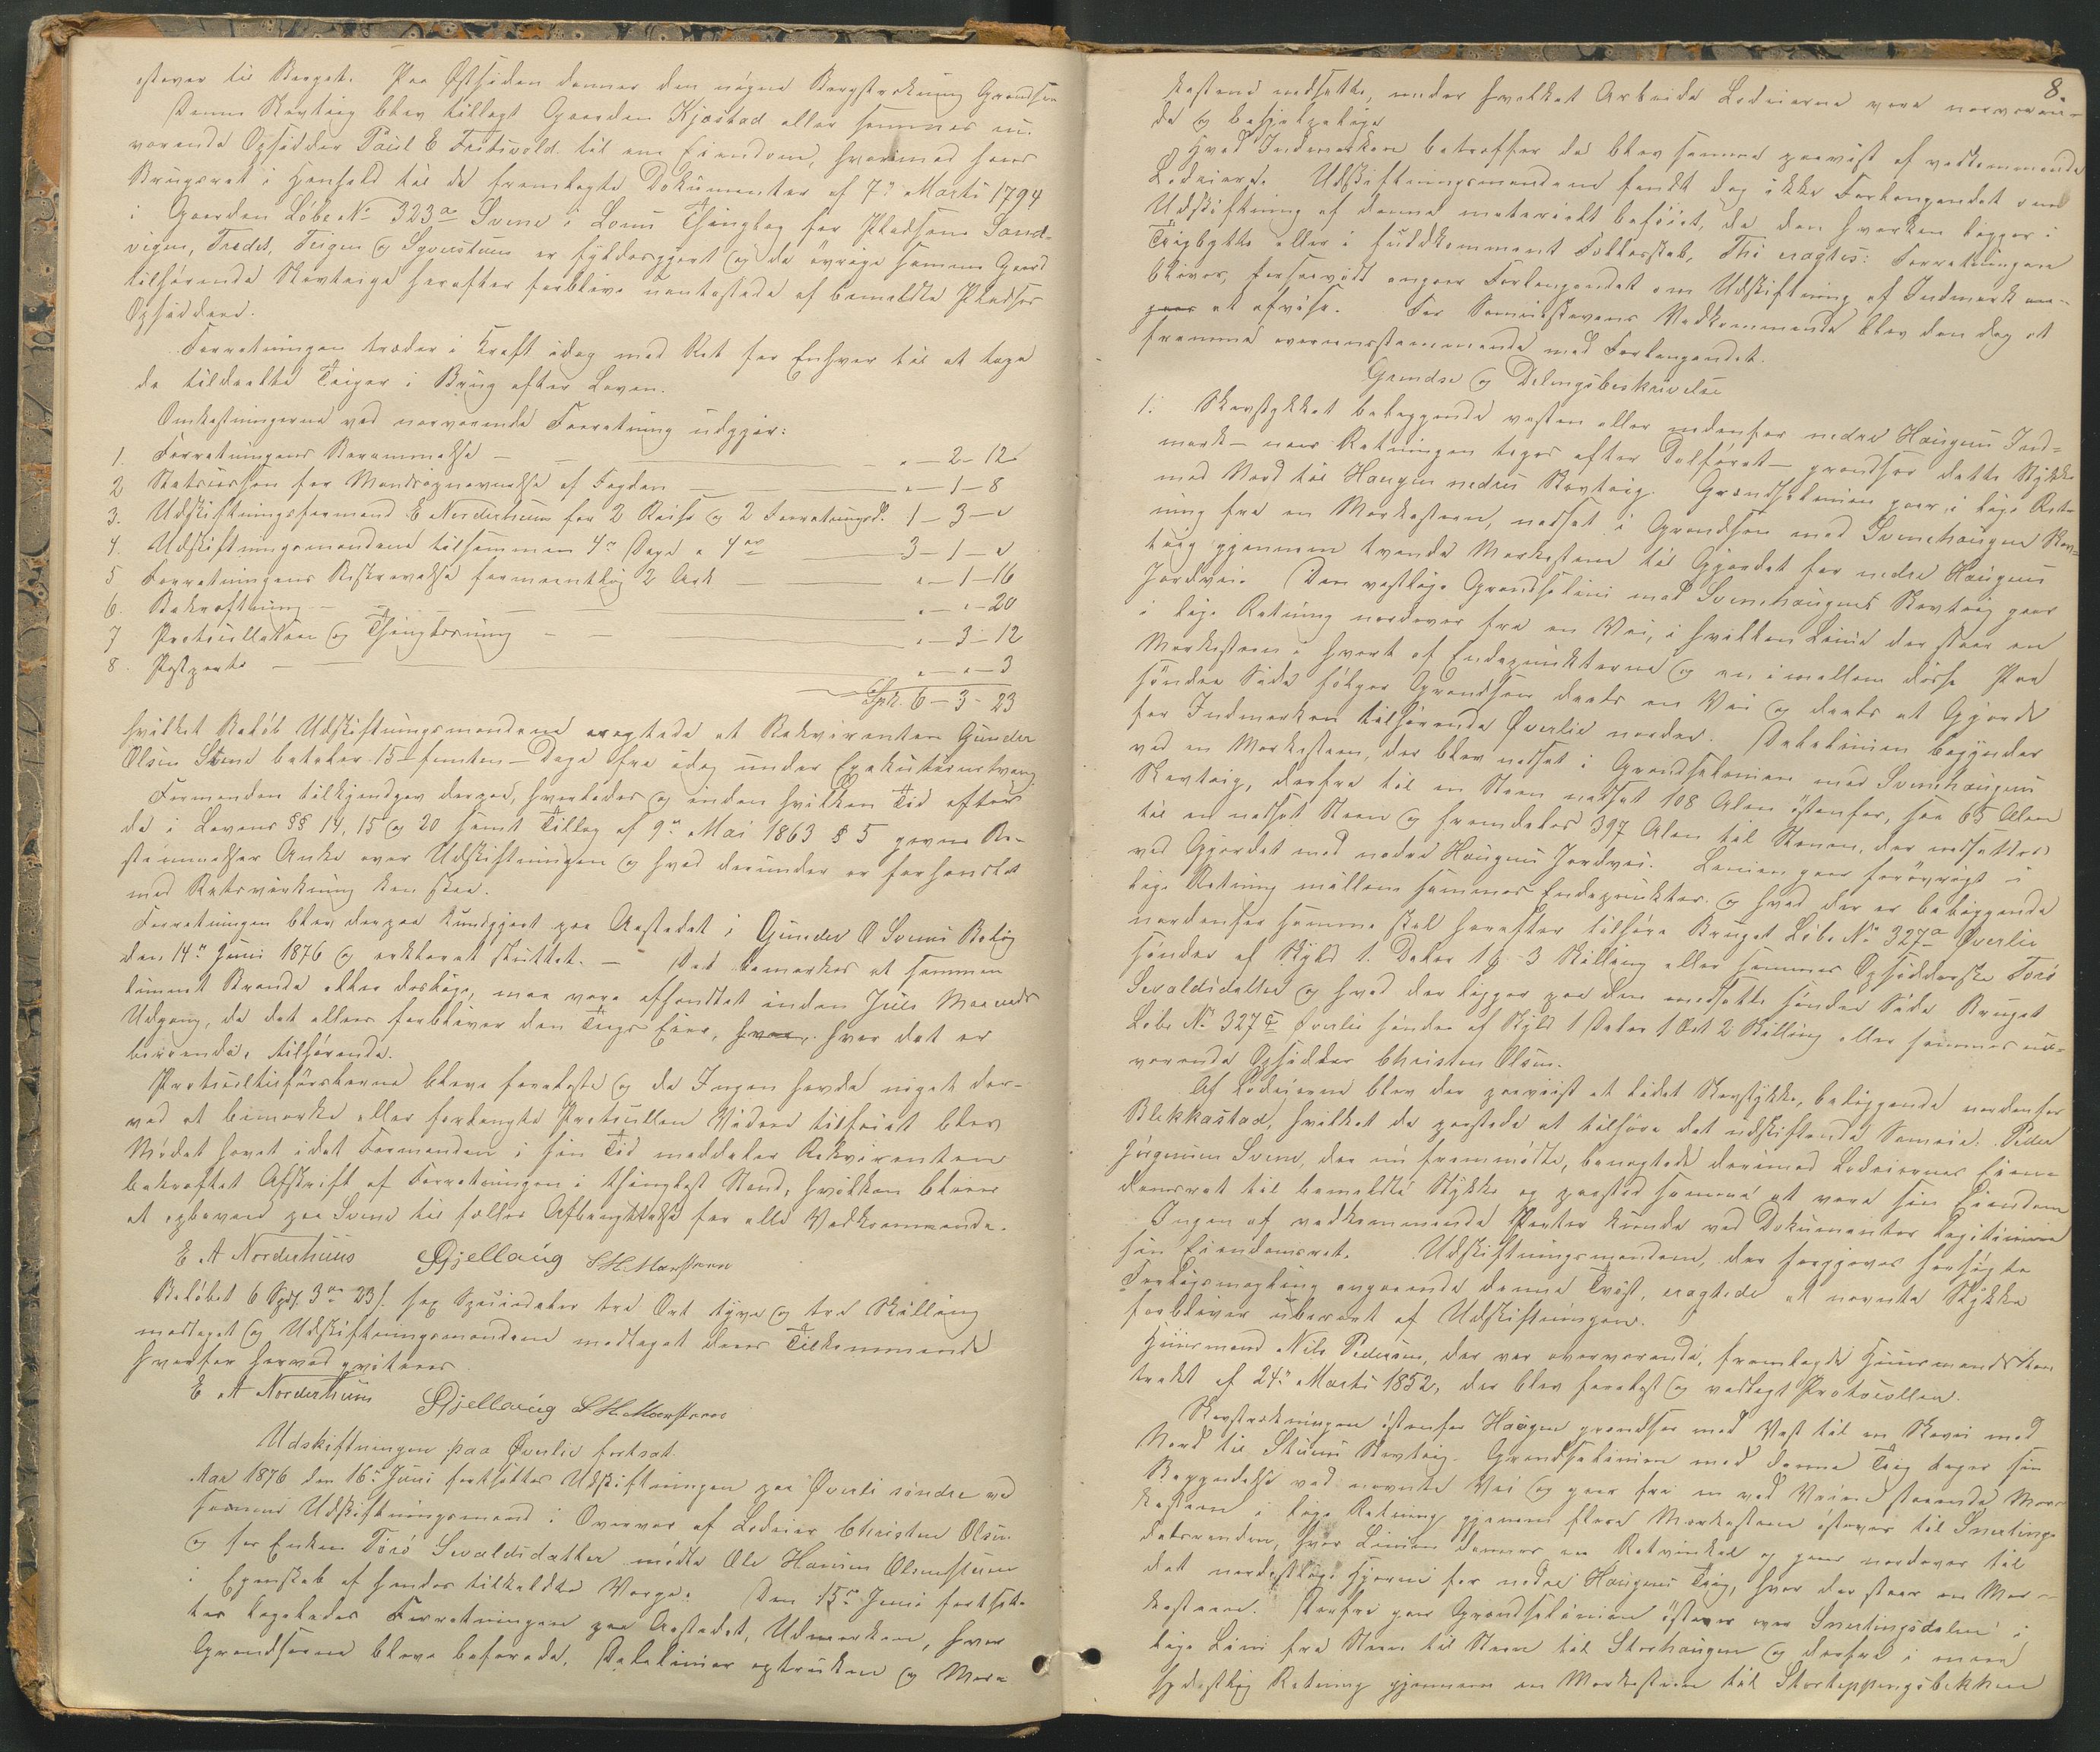 østover til Berget. Paa Østsiden danner den nøgne Bergstrekning Grændsen
Denne Skovteig blev tillagt Gaarden Kjøstad eller sammes nu-
værende Opsidder Paul E Tustivold til ene Eiendom, hvorimod hans
Brugsret i Henhold til de fremlagte Dokumenter af 7de Marts 1794
i Gaarden Løbe No 323a Svene i Lomis Thinglag for Pladsene Sand-
vigen, Trædet, Teigen og Sprusteen er fyldesgjort og de øvrige samme Gaard
tilhørende Skovteige herefter forblive uantastede af bemeldte Pladses
Opsiddere.
Forretningen træder i Kraft idag med Ret for Enhver til at tage
de tildeelte Teiger i Brug efter Loven.
Omkostningerne ved nærværende Forretning udgjør:
1. Forretningens Berammelse — „ — 2 - 12
2 Statscassen for Mandsopnævnelse af Fogden — „ — 1 - 8
3. Udskiftningsformand E Norderhuus for 2 Reise og 2 Forretningsd. 1 — 3 — „
4. Udskiftningsmændene tilsammen 4re Dage a 4 ort 3 — 1 — „
5 Forretningens Beskrevelse formeentlig 2 Ark — „ — 1 — 16
6. Bekræftning — „ — „ — 20
7 Protocollation og Thinglæsning — „ — 3 — 12
8. Postporto — „ — „ — 3
Spd. 6 — 3 - 23
hvilket Beløb Udskiftningsmændene eragtede at Rekvirenten Gunder
Olsen Svene betaler 15 - femten - Dage fra idag under Exekutionstvang
Formanden tilkjendgav derpaa, hvorledes og inden hvilken Tid efter
de i Lovens §§ 14, 15 og 20 samt Tillæg af 9de Mai 1863 § 5 givne Be-
stemmelser Anke over Udskiftningen og hvad derunder er forhandlet
med Retsvirkning kan skee.
Forretningen blev derpaa kundgjort paa Aastedet i Gunder O Svenes Bolig
den 14de Juni 1876 og erklæret sluttet. — Det bemærkes at sammen
kjørt Brænde eller deslige, maa være afhændtet inden Juli Maaneds
Udgang, da det ellers forbliver den Teigs Eier, hvor hvor det er
beroende, tilhørende.
Protocoltilførslerne bleve forelæste og da Ingen havde noget der-
ved at bemærke eller forlangte Protocollen Videre tilføiet blev
Mødet hævet idet Formanden i sin Tid meddeler Rekvirenten
bekræftet Afskrift af Forretningen i thinglæst Stand, hvilken bliver
at opbevare paa Svene til fælles Afbenyttelse for alle Vedkommende.
E A Norderhuus Gjellaug S H. Morstuen
Beløbet 6 Spd. 3 ort 23 s. sex Speciedaler tre Ort tyve og tre Skilling
modtaget og Udskiftningsmændene modtaget deres Tilkommende
hvorfor herved qviteres
E A Norderhuus Gjellaug S H. Morstuen
Udskiftningen paa Øverlie fortsat.
Aar 1876 den 16de Juni fortsattes Udskiftningen paa Øverli søndre ved
samme Udskiftningsmænd i Overvær af Lodeier Christen Olsen
og for Enken Toro Sevaldsdatter mødte Ole Hansen Olimstuen
i Egenskab af hendes tilkaldte Verge. Den 15de Juni fortsat-
tes ligeledes Forretningen paa Aastedet, Udmarken, hvor
Grændserne bleve befarede, Delelinier optrukne og Mær-
8.
kestene nedsatte, under hvilket Arbeide Lodeierne vare nærværen-
de og behjelpelige
Hvad Indmarken betræffer da blev samme paavist af vedkommende
Lodeiere. Udskiftningsmændene fandt dog ikke Forlangendet om
Udskiftning af denne materielt beføiet, da den hverken ligger i
Teigbytte eller i fuldkomment Fællesskab, Thi eragtes: Forretningen
bliver, forsaavidt angaar Forlangendet om Udskiftning af Indmark an-
gaar at afvise. For Sameieskovens Vedkommende blev den dog at
fremme overeensstemmende med Forlangendet.
Grændse og Delingsbeskrivelse
1. Skovstykket beliggende vesten eller nedenfor nedre Haugens Ind-
mark — naar Retningen tages efter Dalføret — grændser dette Stykke
mod Nord til Haugen nedres Skovteig. Grændselinien gaar i lige Ret-
ning fra en Merkesteen, nedsat i Grændsen mod Svenehaugen Skov-
teig gjennem tvende Merkestene til Gjærdet for nedre Haugens
Jordvei. Den vestlige Grændselinie mod Svenehaugens Skovteig gaar
i lige Retning nordover fra en Vei, i hvilken Linie der staar en
Merkesteen i hvert af Endepunkterne og en imellem disse Paa
søndre Side følger Grændsen deels en Vei og deels et Gjærde
for Indmarken tilhørende Øverlie nordre. Delelinien begynder
ved en Merkesteen, der blev nedsat i Grændselinien mod Svenehaugens
Skovteig, derfra til en Steen nedsat 108 Alen østenfor, saa 65 Alen
til en nedsat Steen og fremdeles 397 Alen til Stenen, der nedsattes
ved Gjærdet mod nedre Haugens Jordvei. Linien gaar forøvrigt i
lige Retning mellem sammes Endepunkter og hvad der er beliggende
nordenfor samme skal herefter tilhøre Bruget Løbe No 327a Øverlie
søndre af Skyld 1. Daler 1 § 3 Skilling eller sammes Opsidderske Toro
Sevaldsdatter og hvad der ligger paa den modsatte søndre Side Bruget
Løbe No 327c Øverlie søndre af Skyld 1 Daler 1 Ort 2 Skilling eller sammes nu-
værende Opsidder Christen Olsen.
Af Lodeierne blev der paaviist et lidet Skovstykke, beliggende nordenfor
Blekkastad, hvilket de paastode at tilhøre det udskiftende Sameie. Peder
Jørgensen Svene, der nu fremmødte, benegtede derimod Lodeiernes Eien-
domsret til bemeldte Stykke og paastod samme at være sin Eiendom
Ingen af vedkommende Parter kunde ved Dokumenter legitimere
sin Eiendomsret. Udskiftningsmændene, der forgjæves forsøgte
Forligsmægling angaaende denne Tvist, eragtede at nævnte Stykke
forbliver uberørt af Udskiftningen.
Huusmand Nils Pedersen, der var overværende, fremlagde Huusmandskon
trakt af 24de Marts 1852, der blev forelæst og vedlagt Protocollen.
Skovstrækningen østenfor Haugen grændser mod Vest til en Skovei mod
Nord til Stuens Skovteig. Grændselinien mod denne Teig tager sin
Begyndelse ved nævnte Vei og gaar fra en ved Veien staaende Mær-
kesteen i lige Retning gjennem flere Merkestene østover til Snertings-
dalsranden, hvor Linien danner en Retvinkel og gaar nordover til
det nordøstlige Hjørne for nedre Haugens Teig, hvor der staar en Mer-
kesteen. Derfra gaar Grændselinien østover over Snertingsdalen i
lige Linie fra Steen til Steen til Storhaugen og derfra i mere
sydøstlig Retning gjennem en Merkesteen til Skorteppengsbekken